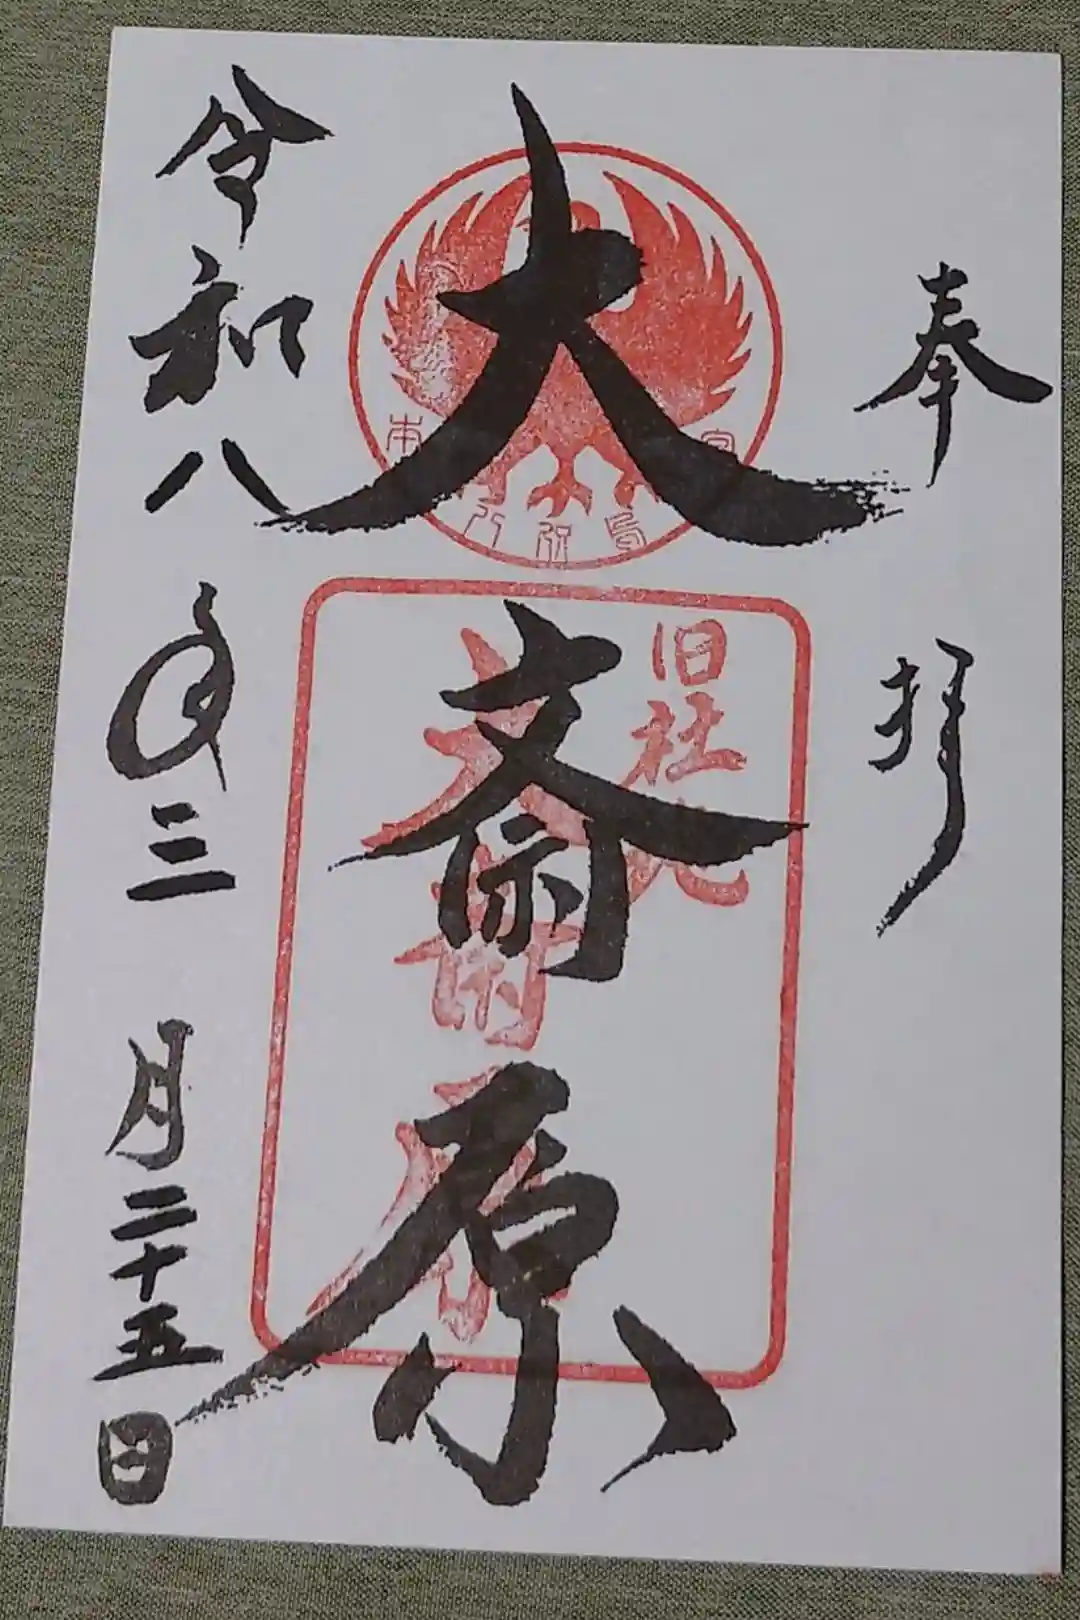 奉拝
大斎原
旧社地
大斎原
令和八年三月二十五日